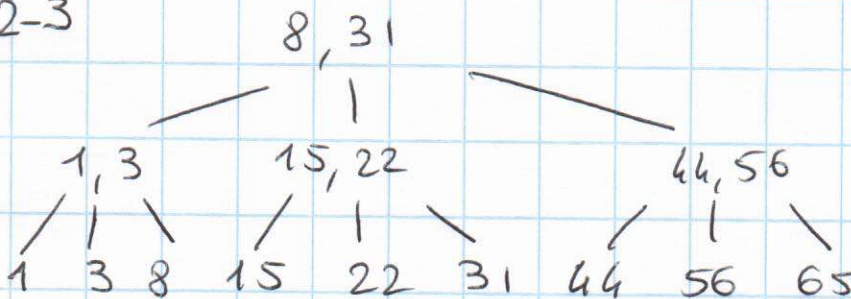 2-3
8, 31
1, 3 15, 22 44, 56
1 3 8 15 22 31 44 56 65